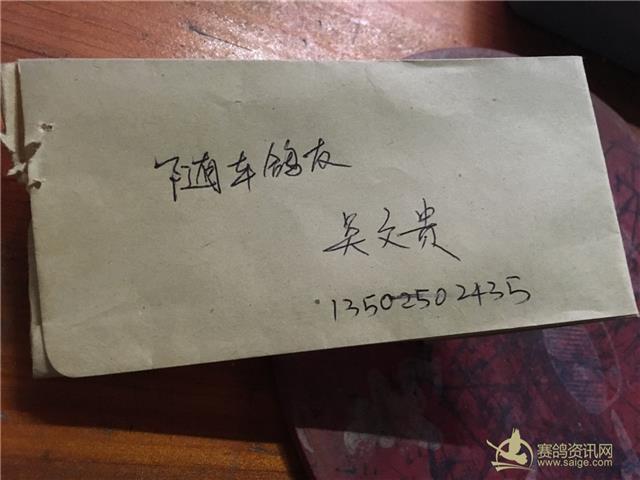 下通车鸽友
吴文贵
13502502435
赛鸽资讯网
www.saige.com